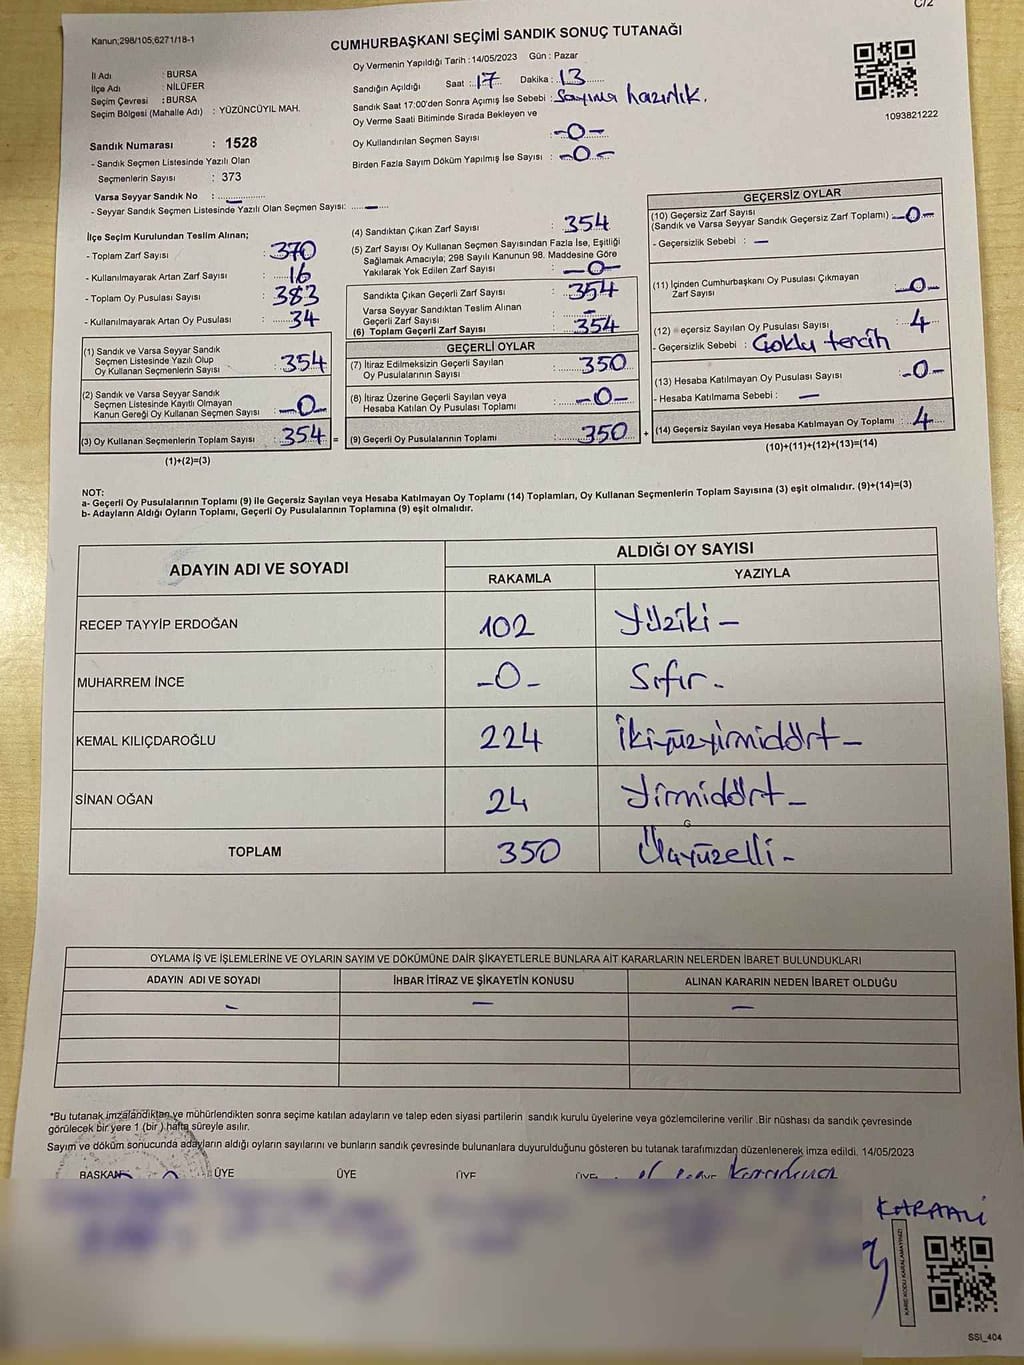 C/2
Kanun;298/105;6271/18-1
CUMHURBAŞKANI SEÇİMİ SANDIK SONUÇ TUTANAĞI
İl Adı : BURSA
İlçe Adı : NİLÜFER
Seçim Çevresi : BURSA
Seçim Bölgesi (Mahalle Adı) : YÜZÜNCÜYIL MAH.
Sandık Numarası : 1528
- Sandık Seçmen Listesinde Yazılı Olan
Seçmenlerin Sayısı : 373
Varsa Seyyar Sandık No : —
- Seyyar Sandık Seçmen Listesinde Yazılı Olan Seçmen Sayısı: —
Oy Vermenin Yapıldığı Tarih : 14/05/2023 Gün : Pazar
Sandığın Açıldığı Saat : 17 Dakika : 13
Sandık Saat 17:00'den Sonra Açımış İse Sebebi : Sayıma hazırlık.
Oy Verme Saati Bitiminde Sırada Bekleyen ve
Oy Kullandırılan Seçmen Sayısı : -0-
Birden Fazla Sayım Döküm Yapılmış İse Sayısı : -0-
1093821222
İlçe Seçim Kurulundan Teslim Alınan;
- Toplam Zarf Sayısı : 370
- Kullanılmayarak Artan Zarf Sayısı : 16
- Toplam Oy Pusulası Sayısı : 383
- Kullanılmayarak Artan Oy Pusulası : 34
(1) Sandık ve Varsa Seyyar Sandık
Seçmen Listesinde Yazılı Olup
Oy Kullanan Seçmenlerin Sayısı : 354
(2) Sandık ve Varsa Seyyar Sandık
Seçmen Listesinde Kayıtlı Olmayan
Kanun Gereği Oy Kullanan Seçmen Sayısı : -0-
(3) Oy Kullanan Seçmenlerin Toplam Sayısı : 354 =
(1)+(2)=(3)
(4) Sandıktan Çıkan Zarf Sayısı : 354
(5) Zarf Sayısı Oy Kullanan Seçmen Sayısından Fazla İse, Eşitliği
Sağlamak Amacıyla; 298 Sayılı Kanunun 98. Maddesine Göre
Yakılarak Yok Edilen Zarf Sayısı : -0-
Sandıkta Çıkan Geçerli Zarf Sayısı : 354
Varsa Seyyar Sandıktan Teslim Alınan
Geçerli Zarf Sayısı : -
(6) Toplam Geçerli Zarf Sayısı : 354
GEÇERLİ OYLAR
(7) İtiraz Edilmeksizin Geçerli Sayılan
Oy Pusulalarının Sayısı : 350
(8) İtiraz Üzerine Geçerli Sayılan veya
Hesaba Katılan Oy Pusulası Toplamı : -0-
(9) Geçerli Oy Pusulalarının Toplamı : 350 +
GEÇERSİZ OYLAR
(10) Geçersiz Zarf Sayısı
(Sandık ve Varsa Seyyar Sandık Geçersiz Zarf Toplamı) : -0-
- Geçersizlik Sebebi : —
(11) İçinden Cumhurbaşkanı Oy Pusulası Çıkmayan
Zarf Sayısı : -0-
(12) eçersiz Sayılan Oy Pusulası Sayısı : 4
- Geçersizlik Sebebi : Çoklu tercih
(13) Hesaba Katılmayan Oy Pusulası Sayısı : -0-
- Hesaba Katılmama Sebebi : —
(14) Geçersiz Sayılan veya Hesaba Katılmayan Oy Toplamı : 4
(10)+(11)+(12)+(13)=(14)
NOT:
a- Geçerli Oy Pusulalarının Toplamı (9) ile Geçersiz Sayılan veya Hesaba Katılmayan Oy Toplamı (14) Toplamları, Oy Kullanan Seçmenlerin Toplam Sayısına (3) eşit olmalıdır. (9)+(14)=(3)
b- Adayların Aldığı Oyların Toplamı, Geçerli Oy Pusulalarının Toplamına (9) eşit olmalıdır.
ADAYIN ADI VE SOYADI ALDIĞI OY SAYISI
RAKAMLA YAZIYLA
RECEP TAYYİP ERDOĞAN 102 Yüziki -
MUHARREM İNCE -0- Sıfır -
KEMAL KILIÇDAROĞLU 224 İkiyüzyirmidört -
SİNAN OĞAN 24 Yirmidört -
TOPLAM 350 Üçyüzelli -
OYLAMA İŞ VE İŞLEMLERİNE VE OYLARIN SAYIM VE DÖKÜMÜNE DAİR ŞİKAYETLERLE BUNLARA AİT KARARLARIN NELERDEN İBARET BULUNDUKLARI
ADAYIN ADI VE SOYADI İHBAR İTİRAZ VE ŞİKAYETİN KONUSU ALINAN KARARIN NEDEN İBARET OLDUĞU
— — —
*Bu tutanak imzalandıktan ve mühürlendikten sonra seçime katılan adayların ve talep eden siyasi partilerin sandık kurulu üyelerine veya gözlemcilerine verilir .Bir nüshası da sandık çevresinde
görülecek bir yere 1 (bir ) hafta süreyle asılır.
Sayım ve döküm sonucunda adayların aldığı oyların sayılarını ve bunların sandık çevresinde bulunanlara duyurulduğunu gösteren bu tutanak tarafımızdan düzenlenerek imza edildi. 14/05/2023
BAŞKAN ÜYE ÜYE ÜYE ÜYE
KARAALİ
KARE KODU KARALAMAYINIZ!
SSI_404